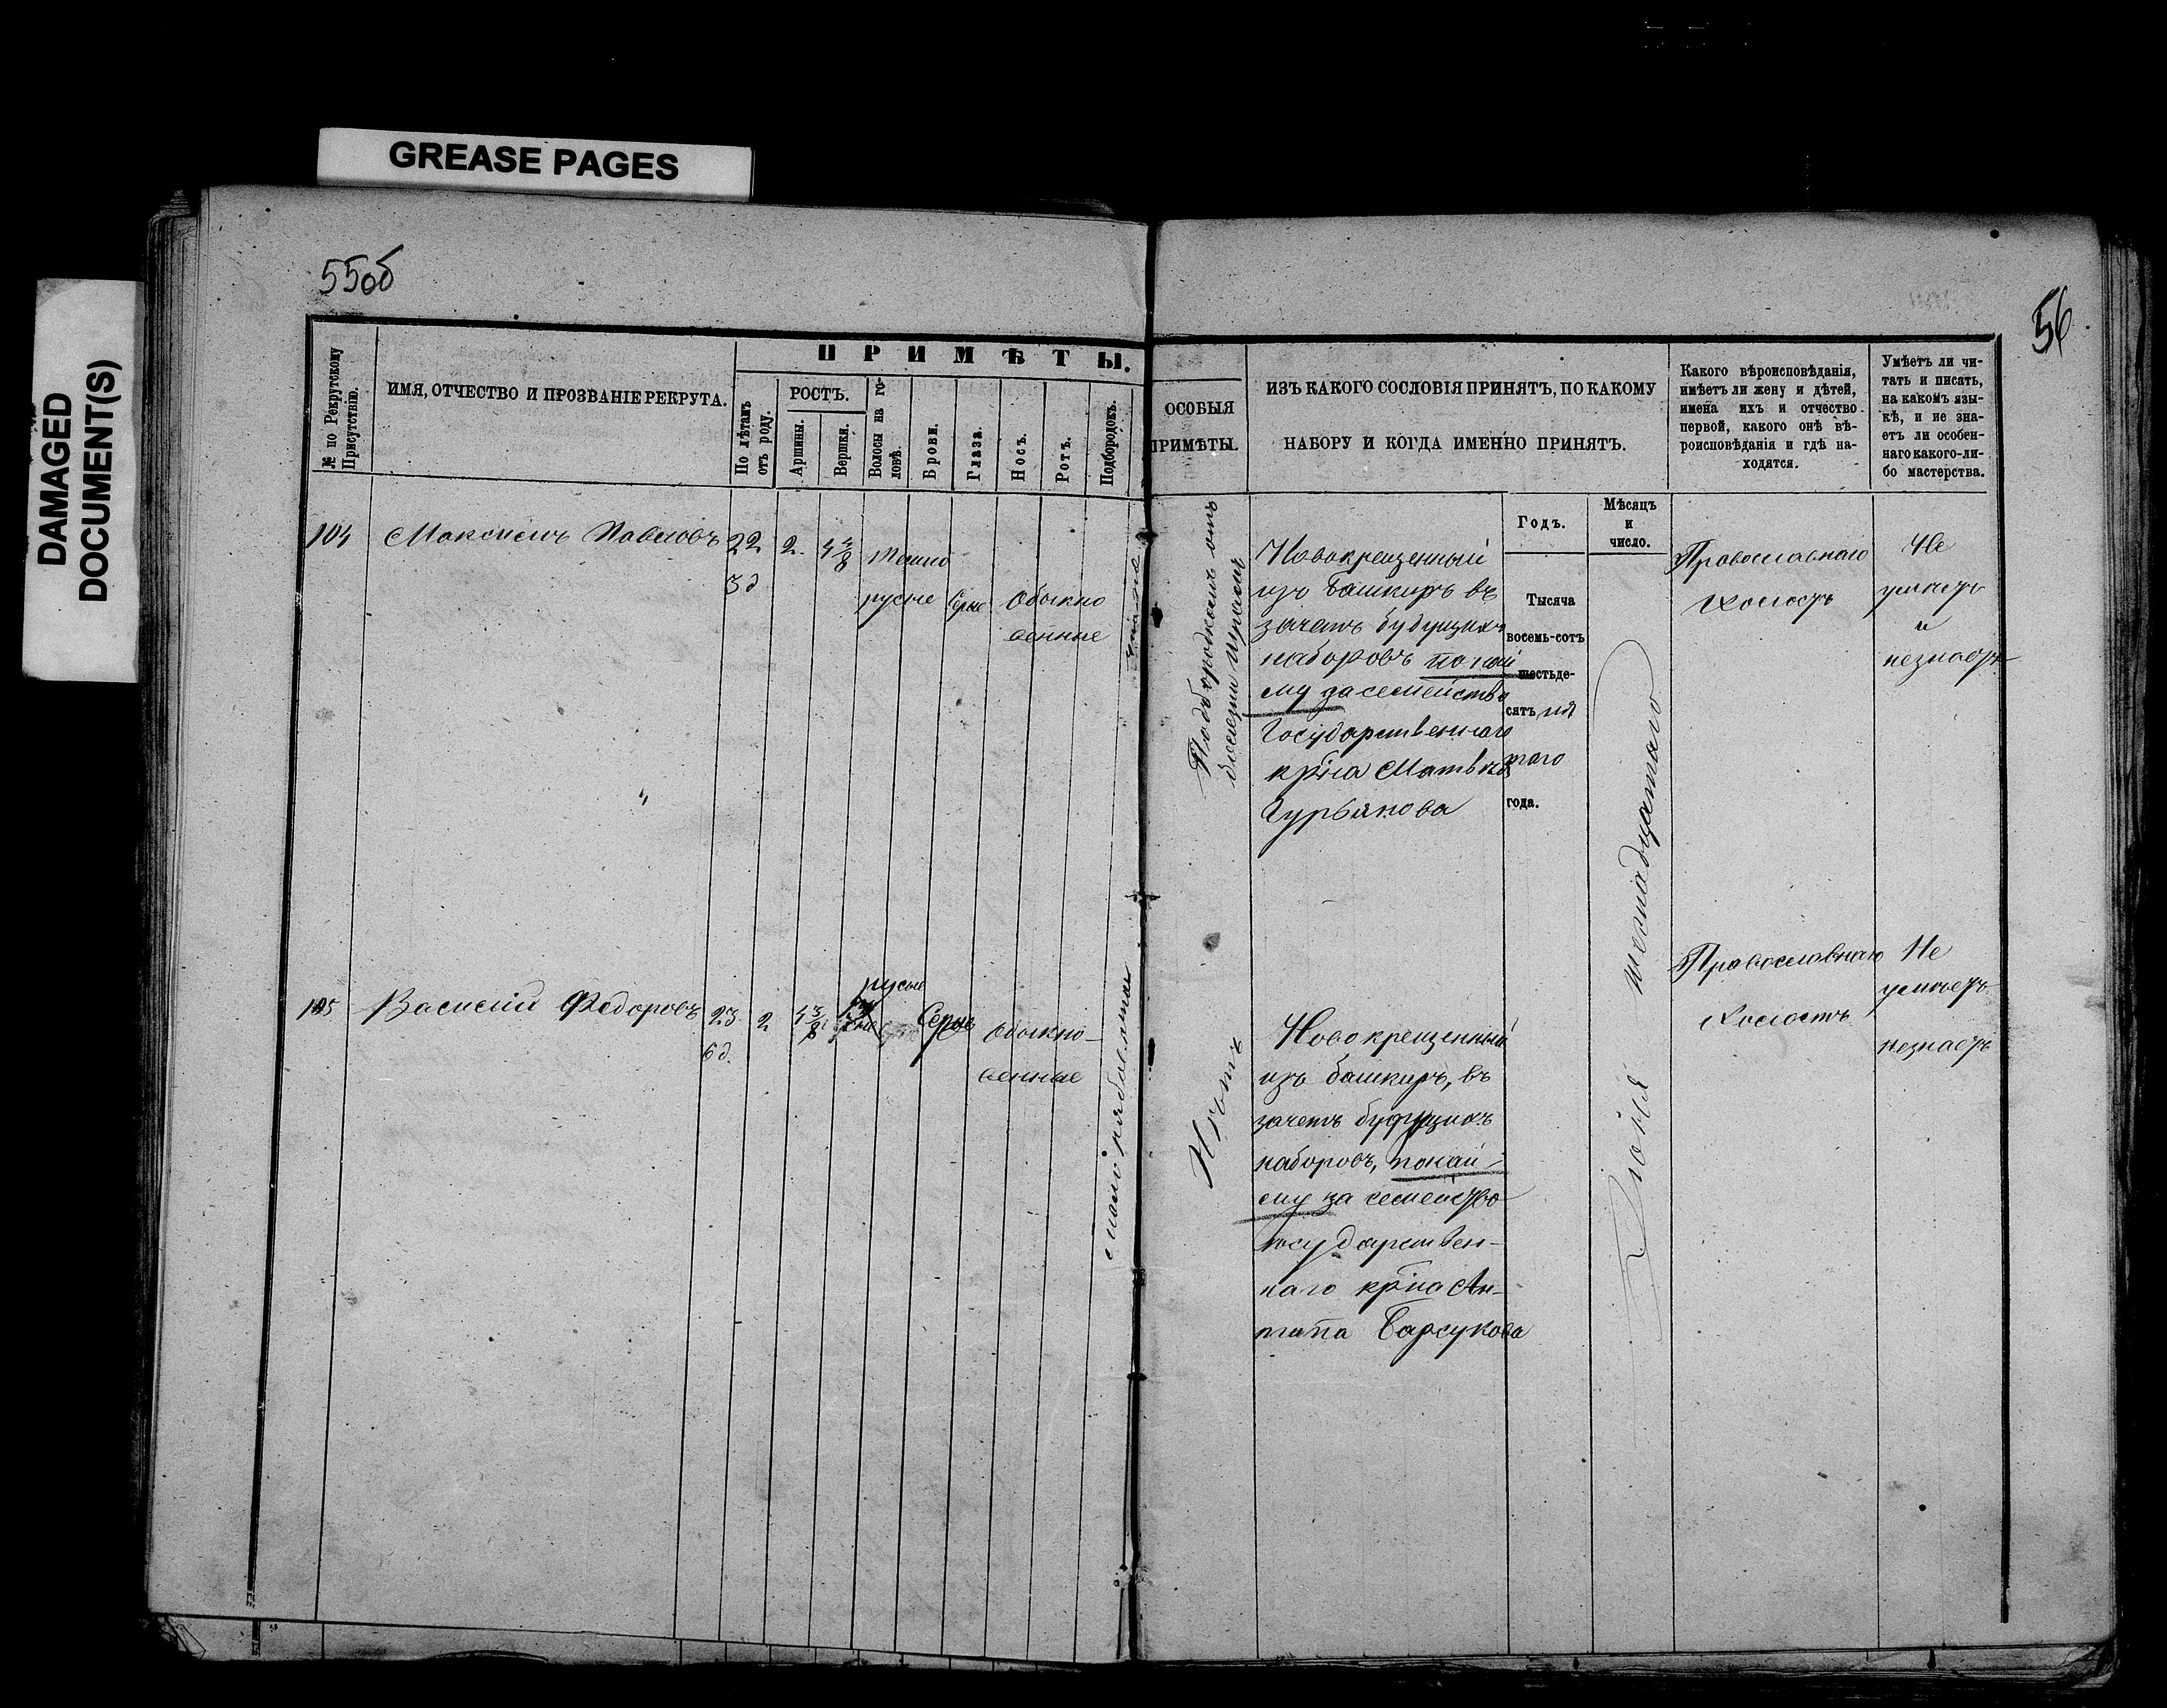 GREASE PAGES
DAMAGED
DOCUMENT(S)
55об
56
№ по Рекрутскому
Присутствію.
ИМЯ, ОТЧЕСТВО И ПРОЗВАНІЕ РЕКРУТА.
ПРИМѢТЫ.
По лѣтамъ
отъ роду.
РОСТЪ.
Аршины.
Вершки.
Волосы на го-
ловѣ.
Брови.
Глаза.
Носъ.
Ротъ.
Подбородокъ.
ОСОБЫЯ
ПРИМѢТЫ.
ИЗЪ КАКОГО СОСЛОВІЯ ПРИНЯТЪ, ПО КАКОМУ
НАБОРУ И КОГДА ИМЕННО ПРИНЯТЪ.
Какого вѣроисповѣданія,
имѣетъ ли жену и дѣтей,
имена ихъ и отчество
первой, какого онѣ вѣ-
роисповѣданія и гдѣ на-
ходятся.
Умѣетъ ли чи-
тать и писать,
на какомъ язы-
кѣ, и не зна-
етъ ли особен-
наго какого-ли-
бо мастерства.
Годъ.
Мѣсяцъ
и
число.
104
Максимъ Павловъ
22
3 д
2
4 4/8
темно
русые
Серые
Обыкно
венные
Подбородкомъ отъ
болезни
Новокрещенный
изъ башкиръ въ
зачетъ будущихъ
наборовъ по най
му за семейство
Государственнаго
кр̃на Матвѣя
Гурьянова
Тысяча
восемь-сотъ
шестьде-
сятъ пя
таго
года.
Іюня шестнадцатаго
Православнаго
Холостъ
Не
умѣетъ
и
незнаетъ
105
Василій Федоровъ
23
6 д.
2
4 3/8
русые
Серые
Обыкно-
венные
Нѣтъ
Новокрещенный
изъ башкиръ, въ
зачетъ будущихъ
наборовъ, по най-
му за семейство
государствен-
наго кр̃на Ан-
типа Барсукова
Православнаго
Холостъ
Не
умѣетъ
незнаетъ